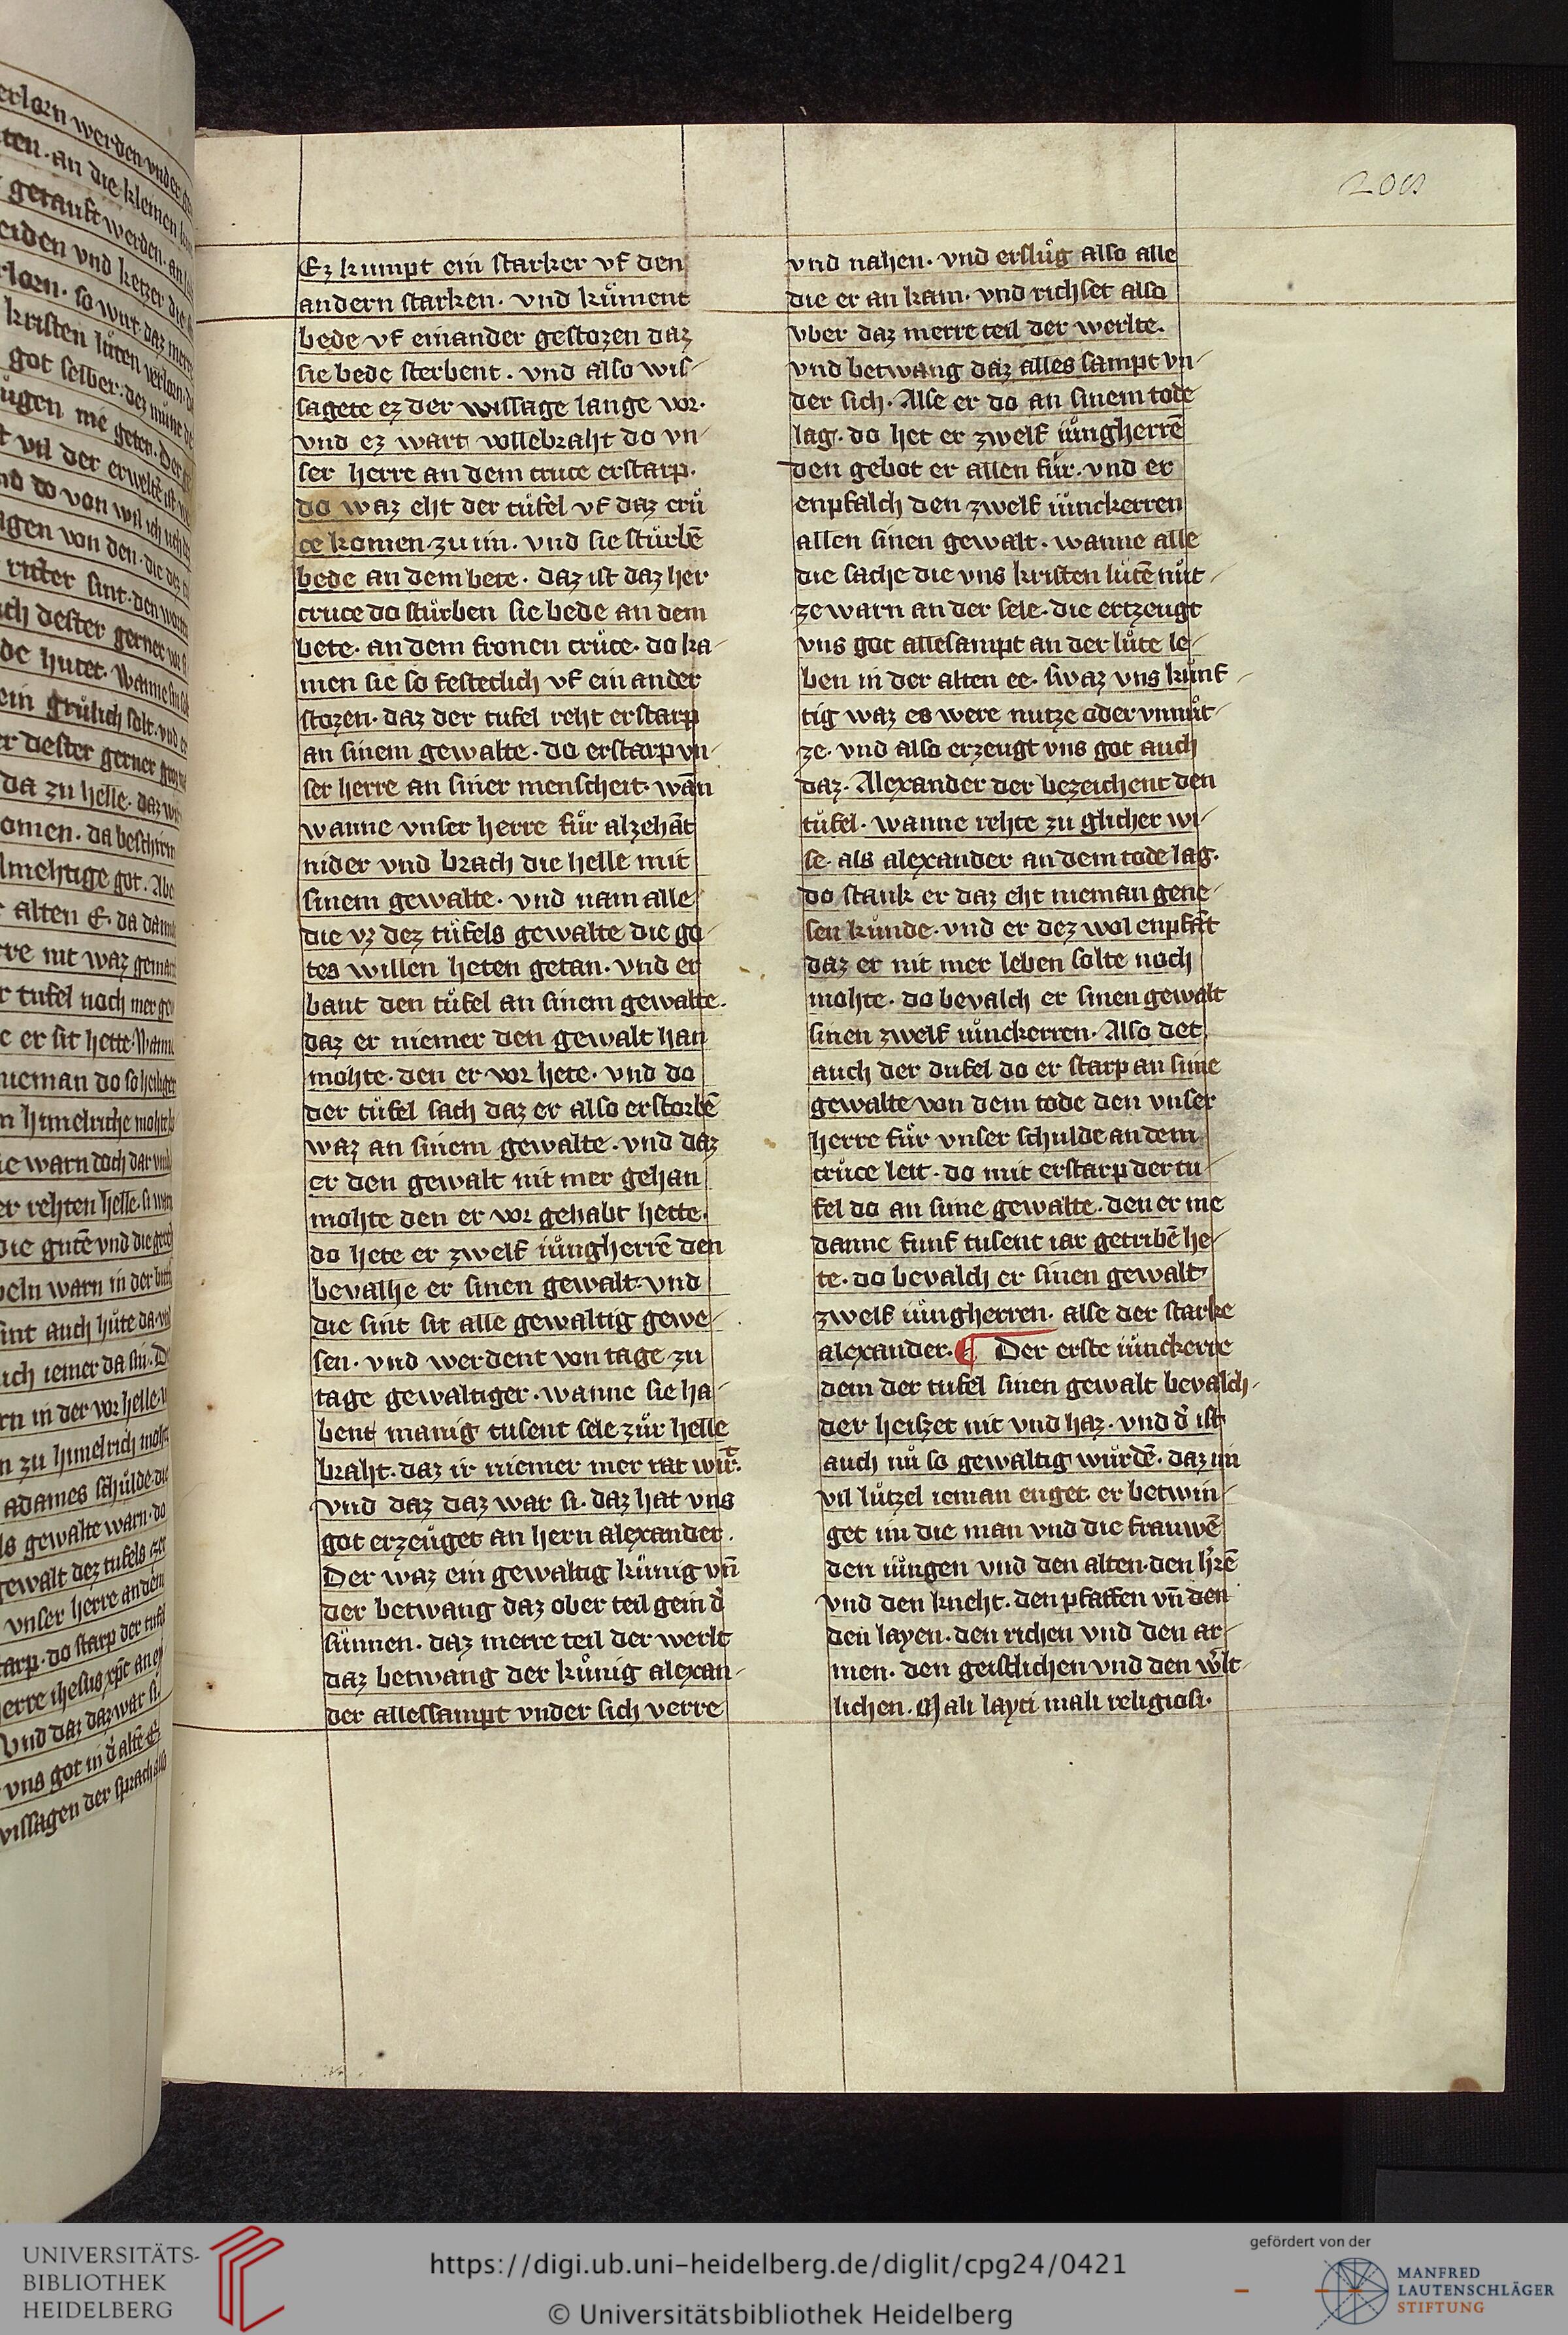 208
Ez kumpt ein starker vf den
andern starken. vnd kuͤment
bede vf einander gestozen daz
sie bede sterbent. vnd also wis-
sagete ez der wissage lange vor.
vnd ez wart vollebraht do vn-
ser herre an dem cruce erstarp.
do waz eht der tuͤfel vf daz cruͤ
ce komen zu im. vnd sie stuͤrbē
bede an dem bete. daz ist daz her
cruce do stuͤrben sie bede an dem
bete. an dem fronen cruͤce. do ka-
men sie so festeclich vf ein ander
stozen. daz der tufel reht erstarp
an sinem gewalte. do erstarp vn-
ser herre an siner menscheit. wān
wanne vnser herre fuͤr alzehāt
nider vnd brach die helle mit
sinem gewalte. vnd nam alle
die vz dez tuͤfels gewalte die go-
tes willen heten getan. vnd er
bant den tuͤfel an sinem gewalte.
daz er niemer den gewalt han
mohte. den er vor hete. vnd do
der tuͤfel sach daz er also erstorbē
waz an sinem gewalte. vnd daz
er den gewalt nit mer gehan
mohte den er vor gehabt hette.
do hete er zwelf iuͤngherrē den
bevalhe er sinen gewalt. vnd
die sint sit alle gewaltig gewe-
sen. vnd werdent von tage zu
tage gewaltiger. wanne sie ha-
bent manig tusent sele zuͤr helle
braht. daz ir niemer mer rat wir͛t.
vnd daz daz war si. daz hat vns
got erzeuget an hern alexander.
Der waz ein gewaltig kuͤnig vn̄
der betwang daz ober teil gein d͛
sunnen. daz merre teil der werlt
daz betwang der kuͤnig alexan-
der allessampt vnder sich verre
vnd nahen. vnd ersluͦg also alle
die er an kam. vnd richset also
vber daz merre teil der werlte.
vnd betwang daz alles sampt vn-
der sich. Alse er do an sinem tode
lag. do het er zwelf iuͤngherrē
den gebot er allen fuͤr. vnd er
enpfalch den zwelf iuͤnckerren
allen sinen gewalt. wanne alle
die sache die vns kristen luͤtē nuͤt-
ze warn an der sele. die ertzeugt
vns got allesampt an der luͤte le-
ben in der alten ee. swaz vns kuͤnf-
tig waz es were nutze oder vnnuͤt-
ze. vnd also erzeugt vns got auch
daz. Alexander der bezeichent den
tuͤfel. wanne rehte zu glicher wi-
se. als alexander an dem tode lag.
do stank er daz eht nieman gene-
sen kuͤnde. vnd er dez wol enpfāt
daz er nit mer leben solte noch
mohte. do bevalch er sinen gewalt
sinen zwelf iuͤnckerren. Also det
auch der dufel do er starp an sime
gewalte von dem tode den vnser
herre fuͤr vnser schulde an dem
cruͤce leit. do mit erstarp der tu-
fel do an sime gewalte. den er me
danne funf tusent iar getribē he-
te. do bevalch er sinen gewalt
zwelf iuͤngherren. alse der starke
alexander. ¶ Der erste iuͤnckerre
dem der tufel sinen gewalt bevalch-
der heiszet nit vnd haz. vnd d͛ ist
auch nuͤ so gewaltig wuͤrdē. daz im
vil luͤtzel ieman enget. er betwin-
get im die man vnd die frauwē
den iuͤngen vnd den alten. den h͛rē
vnd den kneht. den pfaffen vn̄ den
den layen. den richen vnd den ar-
men. den geistlichen vnd den w͛lt-
lichen. Mali layci mali religiosi.
UNIVERSITÄTS-
BIBLIOTHEK
HEIDELBERG
https://digi.ub.uni-heidelberg.de/diglit/cpg24/0421
© Universitätsbibliothek Heidelberg
gefördert von der
MANFRED
LAUTENSCHLÄGER
STIFTUNG